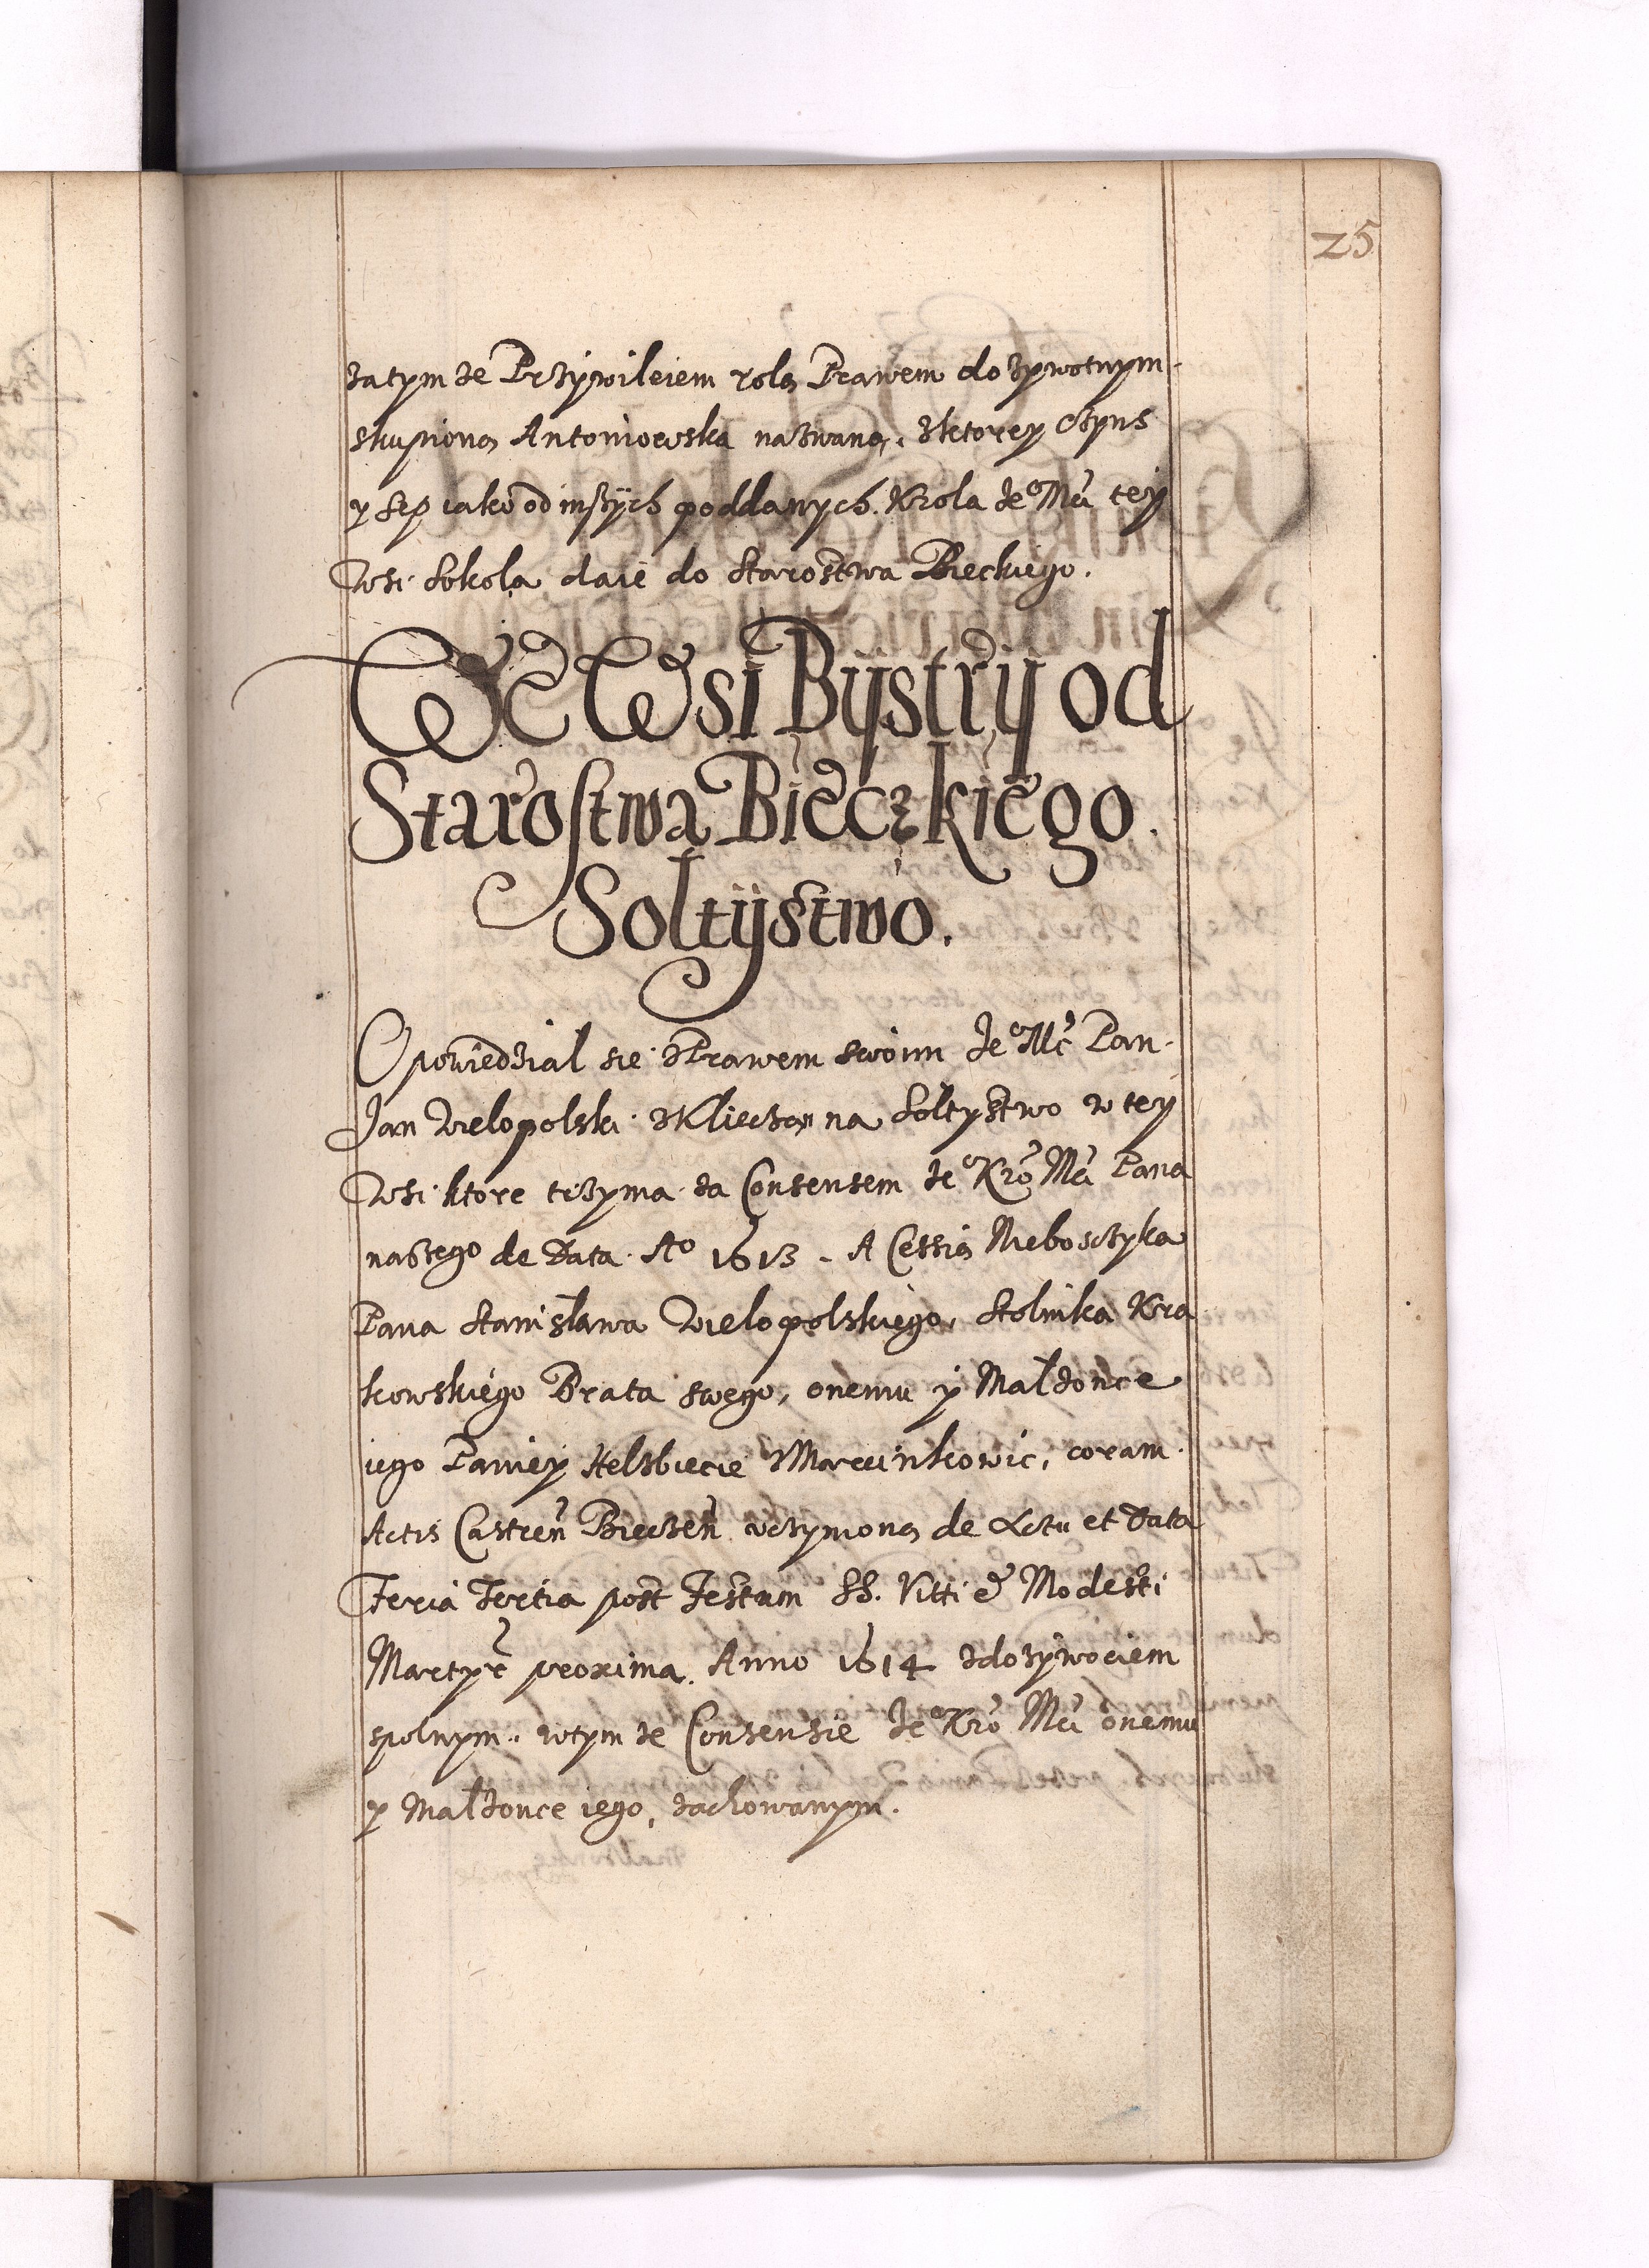 25
za tym ze Przywileiem rolą Prawem dozywotnym
skupioną Antoniowska nazwaną, z ktorey czyns
y sep iako od inszych poddanych Krola Je° Mci tey
Wsi Sokola daie do Starostwa Bieckiego.
We Wsi Bystrÿ od
Starostwa Bieczkiego.
Soltÿstwo.
Opowiedzial sie z Prawem swoim Je° Mć Pan
Jan Wielopolski z Kliecza na Soltystwo w tey
Wsi ktore trzyma za Consensem Je° Kro Mci Pana
naszego de Data A° 1613 - A Cessią Nieboszczyka
Pana Stanisława Wielopolskiego, Stolnika Kra
kowskiego Brata swego, onemu y Małzonce
iego Paniey Helzbiecie Marcinkowic, coram
Actis Castren̄ Biecen̄ uczynioną de Actu et Data
Feria Tertia post Festum SS. Vitti et Modesti
Martyr proxima. Anno 1614 z dozywociem
spolnym, w tym ze Consensie Je° Kro Mci onemu
y Małzonce iego, zachowanym.